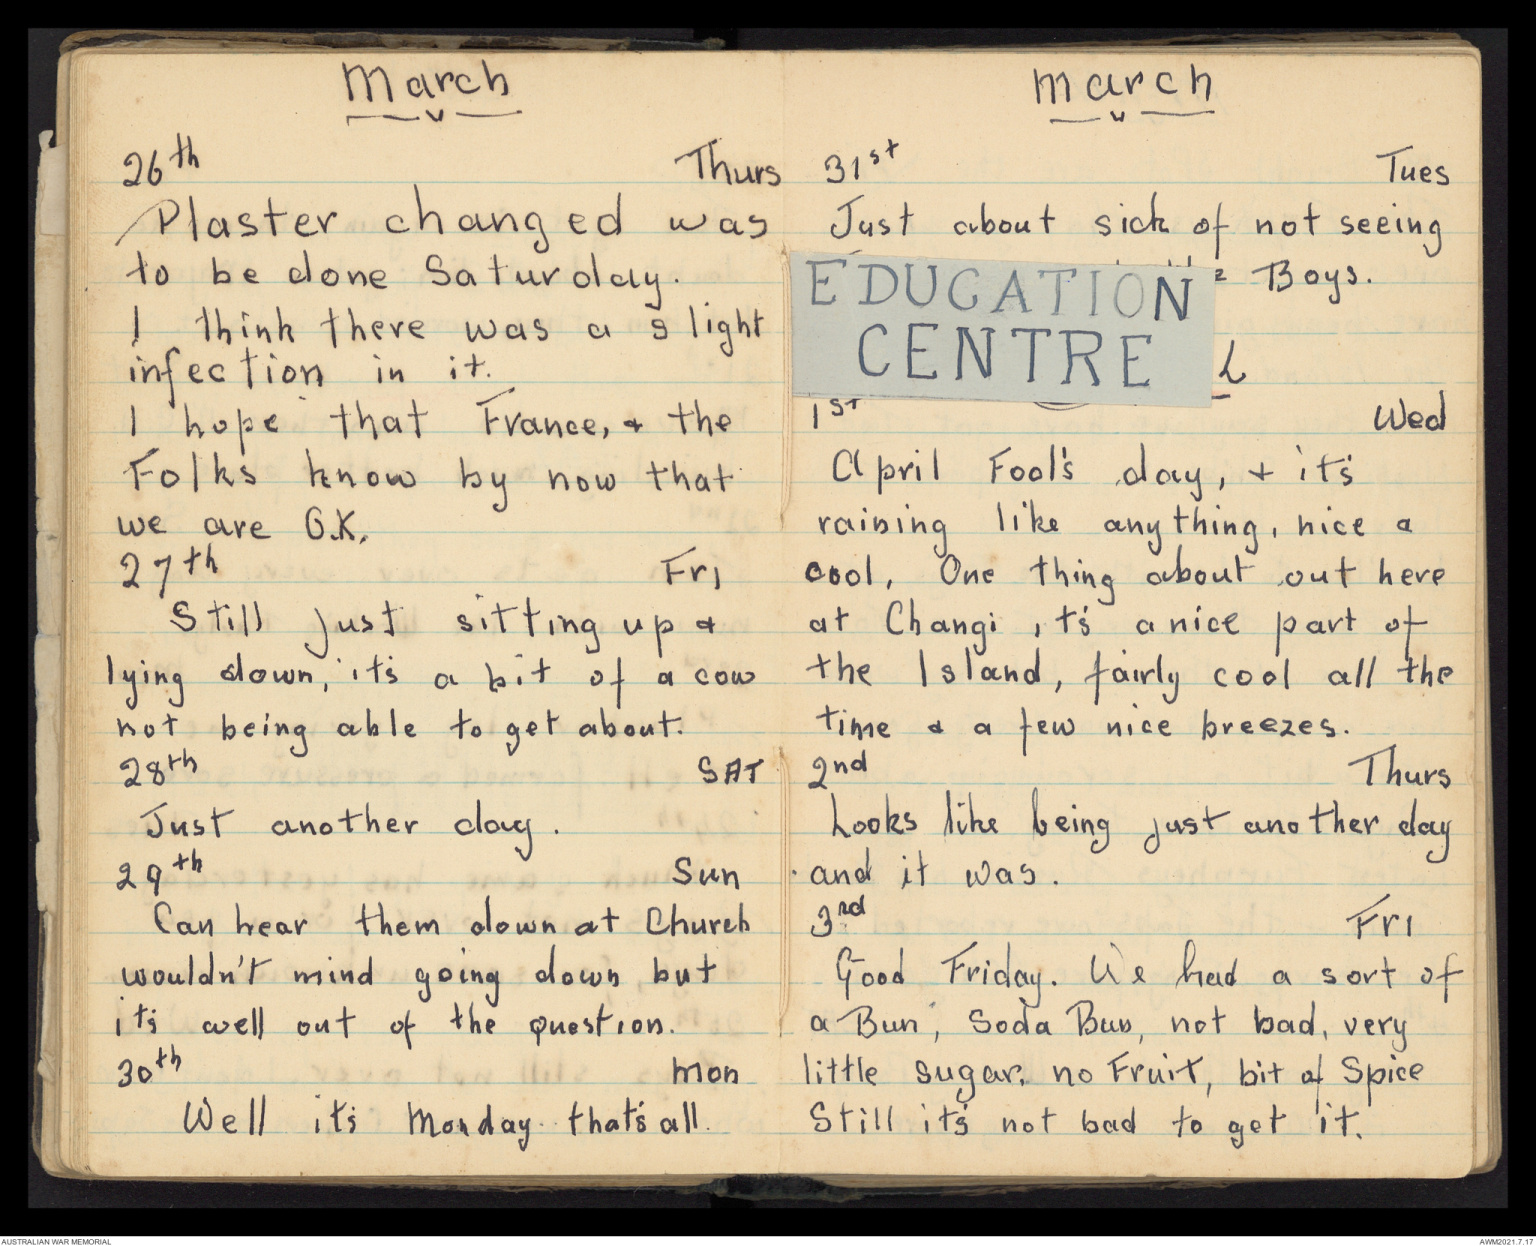 March
26th Thurs
Plaster changed was
to be done Saturday.
I think there was a slight
infection in it.
I hope that France, + the
Folks know by now that
we are O.K.
27th Fri
Still just sitting up +
lying down, it's a bit of a cow
not being able to get about.
28th SAT
Just another day.
29th Sun
Can hear them down at Church
wouldn't mind going down but
it's well out of the question.
30th Mon
Well it's Monday that's all.
March
31st Tues
Just about sick of not seeing
Boys.
EDUCATION
CENTRE
L
1st Wed
April Fool's day, + it's
raining like anything, nice a
cool, One thing about out here
at Changi it's a nice part of
the Island, fairly cool all the
time + a few nice breezes.
2nd Thurs
Looks like being just another day
and it was.
3rd Fri
Good Friday. We had a sort of
a Bun, Soda Bun, not bad, very
little sugar, no Fruit, bit of Spice
Still it's not bad to get it.
AUSTRALIAN WAR MEMORIAL
AWM2021.7.17